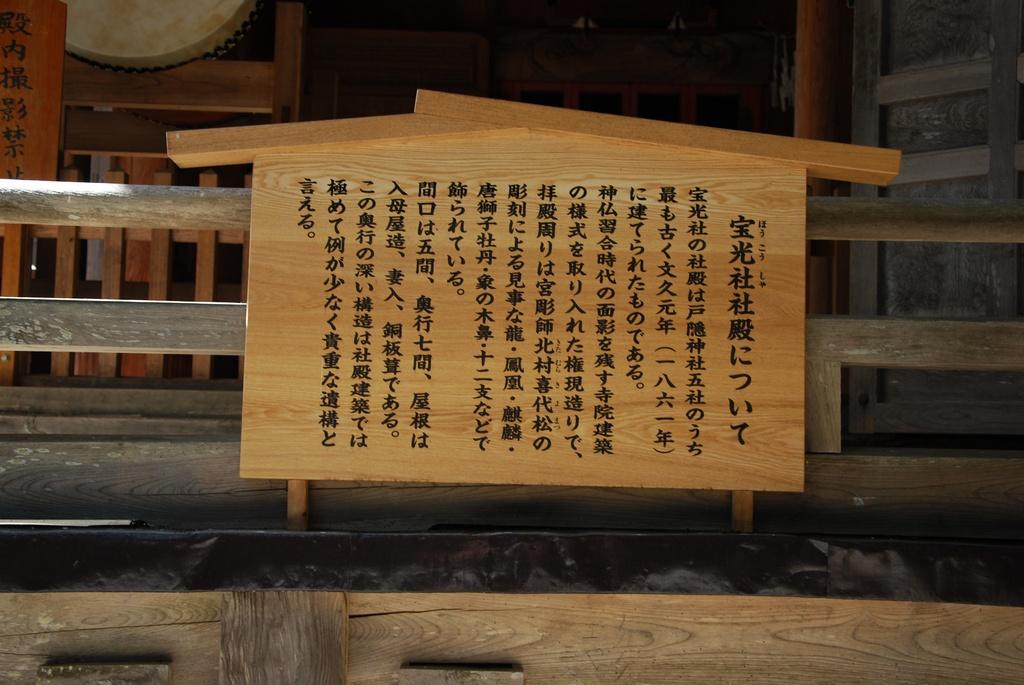 宝光社社殿について
ほうこうしゃ
宝光社の社殿は戸隠神社五社のうち
最も古く文久元年（一八六一年）
に建てられたものである。
神仏習合時代の面影を残す寺院建築
の様式を取り入れた権現造りで、
拝殿周りは宮彫師北村喜代松の
きたむらきよまつ
彫刻による見事な龍・鳳凰・麒麟・
唐獅子牡丹・象の木鼻・十二支などで
飾られている。
間口は五間、奥行七間、屋根は
入母屋造、妻入、銅板葺である。
この奥行の深い構造は社殿建築では
極めて例が少なく貴重な遺構と
言える。
殿内撮影禁止